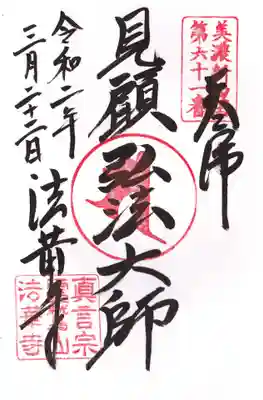 奉拝
美濃新四国
第六十一番
見顧弘法大師
令和二年
三月二十二日
法華寺
真言宗
霊鷲山
法華寺